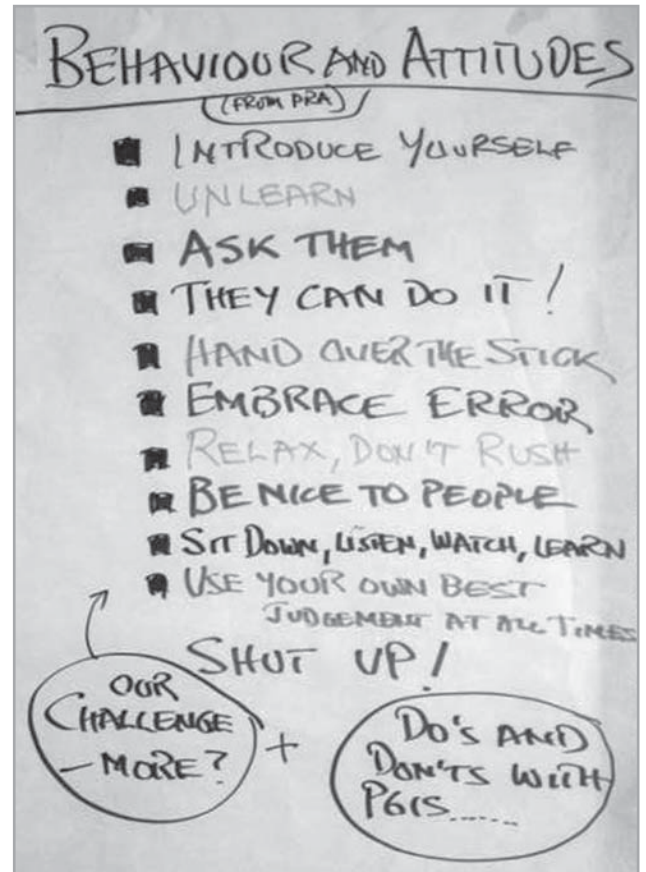 BEHAVIOUR AND ATTITUDES
(FROM PRA)
INTRODUCE YOURSELF
UNLEARN
ASK THEM
THEY CAN DO IT!
HAND OVER THE STICK
EMBRACE ERROR
RELAX, DON'T RUSH
BE NICE TO PEOPLE
SIT DOWN, LISTEN, WATCH, LEARN
USE YOUR OWN BEST
JUDGEMENT AT ALL TIMES
SHUT UP!
OUR
CHALLENGE
– MORE?
+
DO'S AND
DON'TS WITH
PGIS......